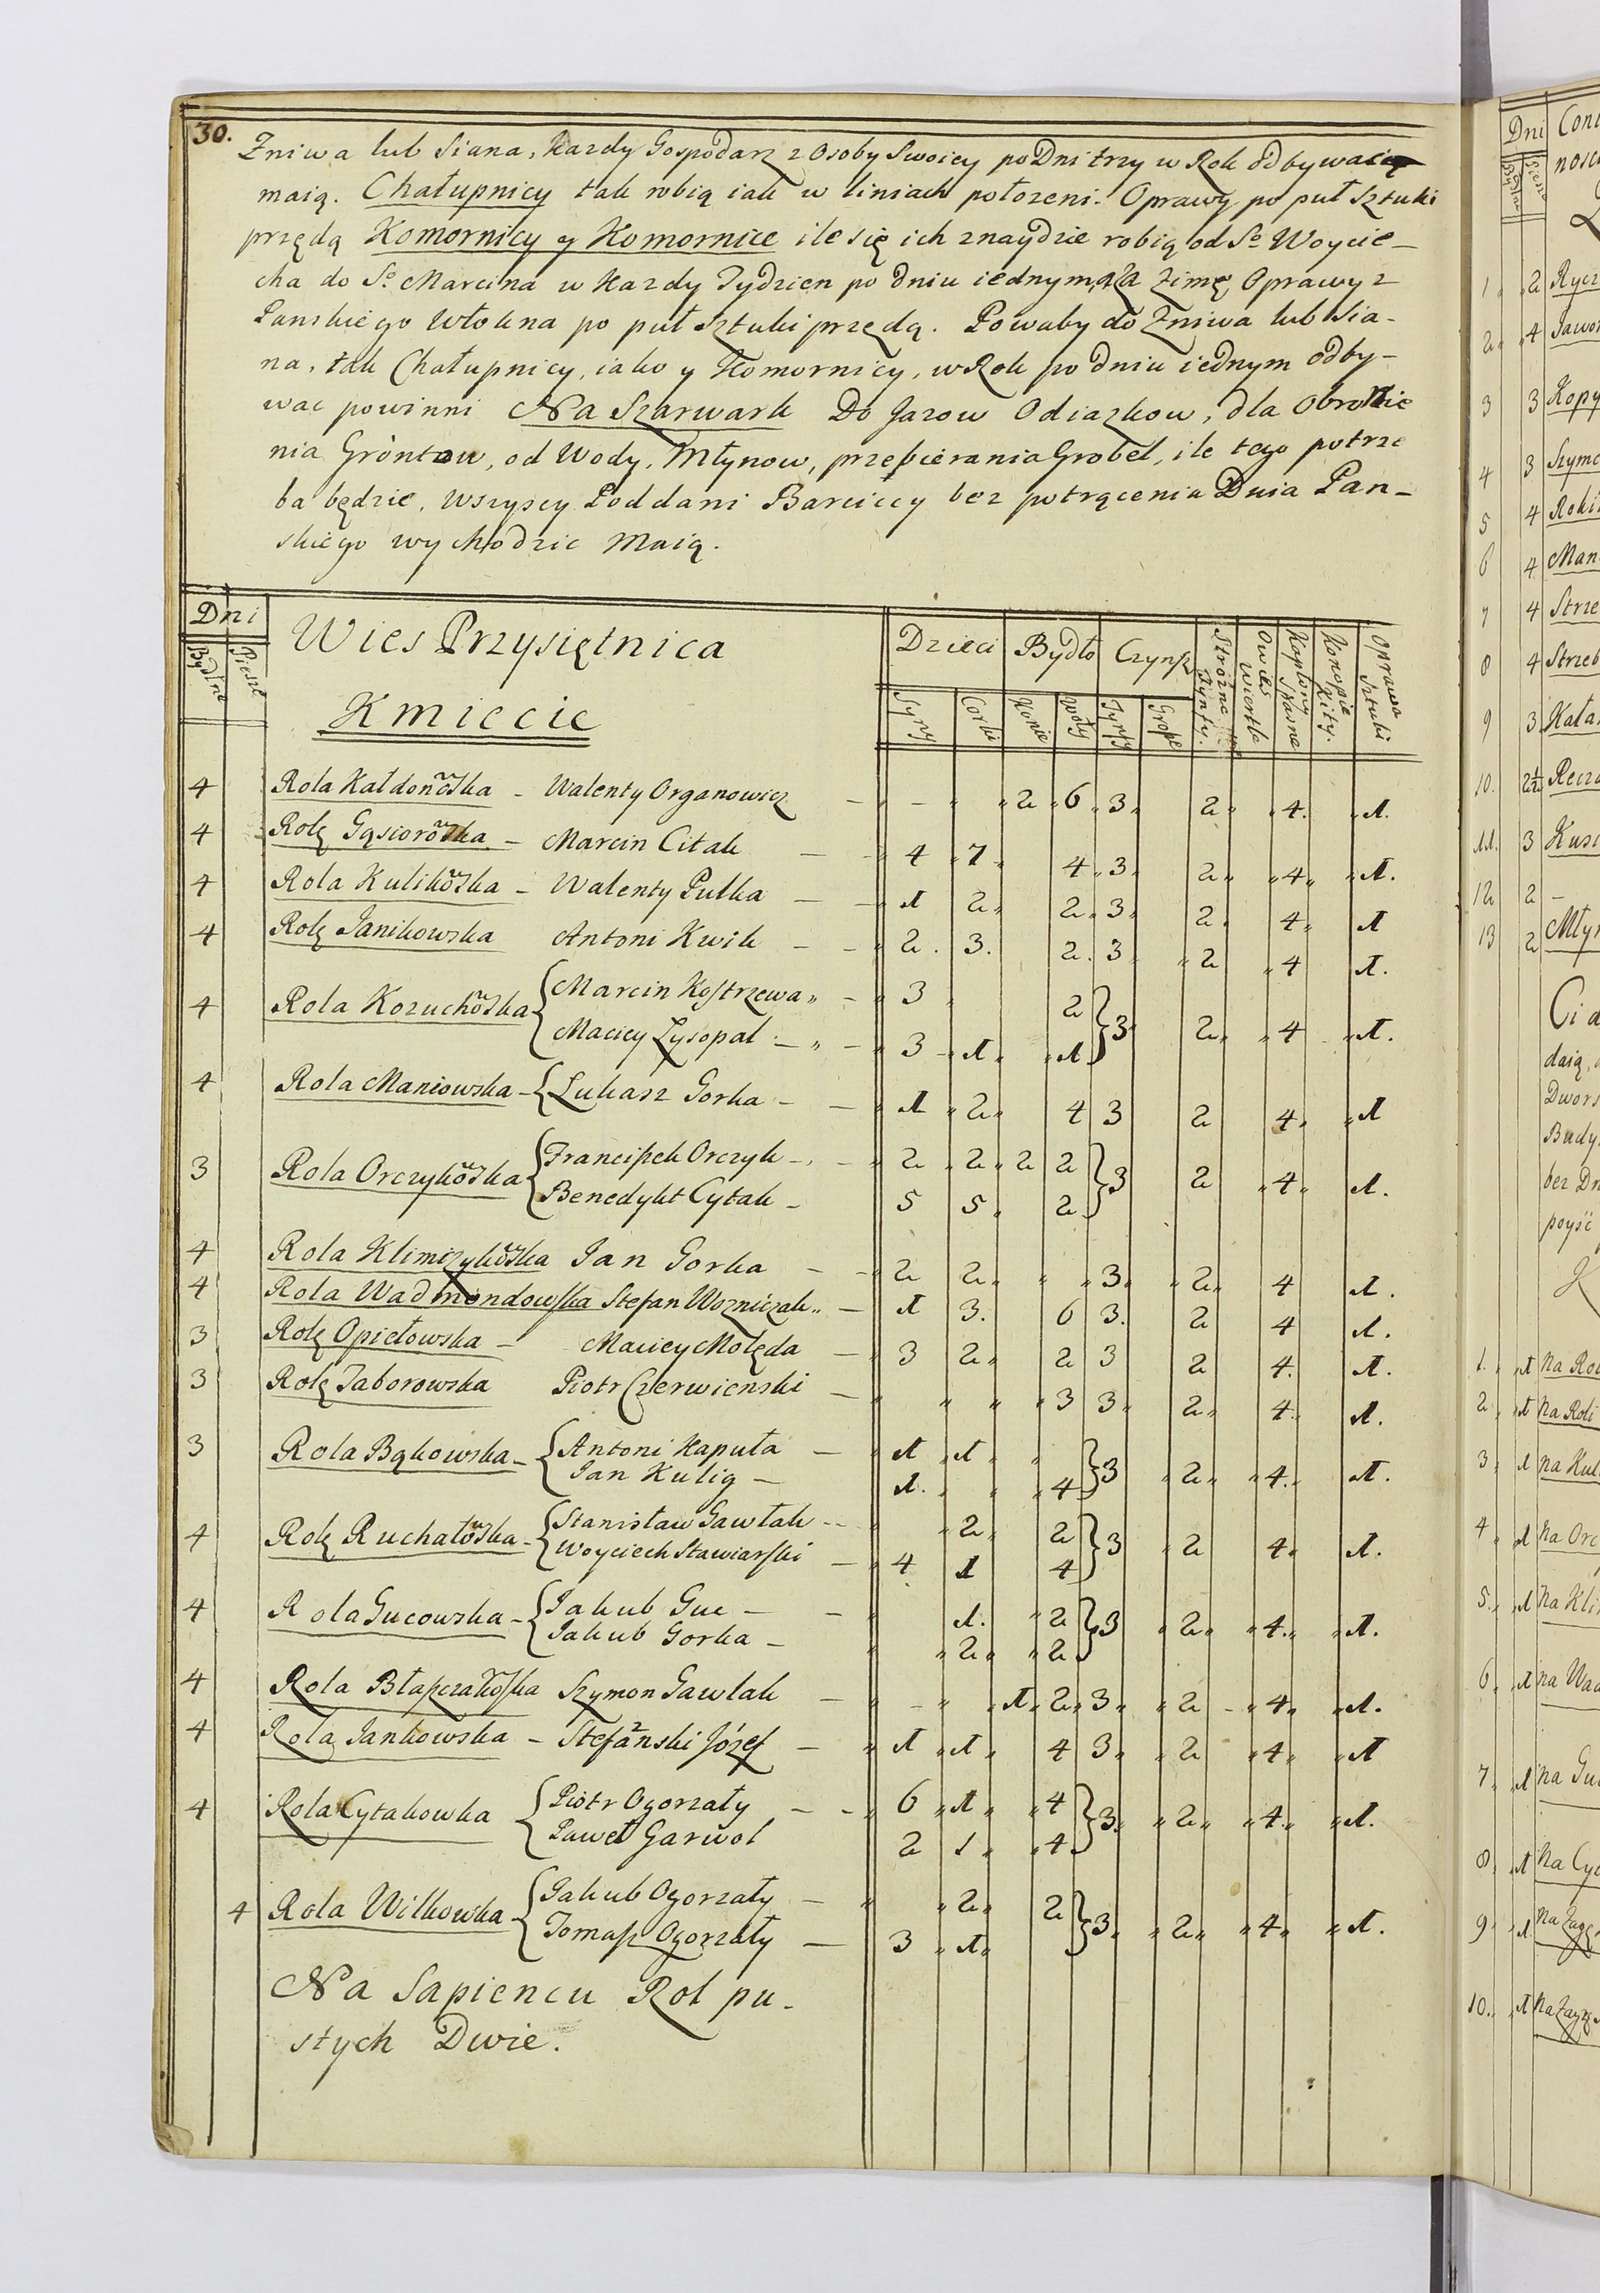 30.
Zniwa lub Siana, kazdy Gospodarz z Osoby Swoiey po Dni trzy w Rok odbywać
maią. Chałupnicy tak robią iak w liniach położeni. Oprawy po puł Sztuki
przędą Komornicy y Komornice ile się ich znaydzie robią od Sº Woycie-
cha do Sº Marcina w kazdy Tydzien po dniu iednym, na Zimę Oprawy z
Panskiego Włokna po puł Sztuki przędą. Powaby do Zniwa lub Sia-
na, tak Chałupnicy, iako y Komornicy, w Rok po dniu iednym odby-
wac powinni Na Szarwark Do Jazow Odiazkow, dla obronie
nia Gróntow, od Wody, Młynow, przebierania Grobel, ile tego potrze
ba będzie, wszyscy Poddani Barciccy bez potrącenia Dnia Pan-
skiego wychodzic maią.
Dni Wies Przysietnica Dzieci Bydło Czynsz Stróżne Tynfy. Owies Wiertle Kapłony Konopie Kity. Oprawa Sztuki
Bydlne Piesze Kmiecie Syny Corki Konie Woły Tynfy Grosze
4 Rola Kałdonowska - Walenty Organowicz - „ - „ „ 2 „ 6 „ 3 „ 2 „ „ 4. „ 1.
4 Rola Gąsiorowska - Marcin Citak - „ 4 „ 7 „ 4 „ 3 „ 2 „ „ 4 „ „ 1.
4 Rola Kulikowska - Walenty Pulka - „ 1 2 „ 2 „ 3 „ 2 „ 4 „ 1
4 Rola Janikowska Antoni Kwik - - „ 2. 3. 2. 3 „ „ 2 „ 4 1.
4 Rola Kozuchowska { Marcin Kostrzewa „ - „ 3 „ 2 } 3 2 „ „ 4 „ 1.
Maciey Łysopał - „ - „ 3 - 1 „ „ 1
4 Rola Maniowska - { Łukasz Gorka - - „ 1 „ 2 „ 4 3 2 4 „ „ 1
3 Rola Orczykowska { Franciszek Orczyk - „ 2 „ 2 „ 2 2 } 3 2 „ 4 „ 1.
Benedykt Cytak - 5 5 „ 2
4 Rola Klimczykowska Jan Gorka - - „ 2 2 „ „ „ „ 3 „ „ 2 „ 4 1.
4 Rola Wadmondowska Stefan Wozniczak „ - 1 3. 6 3. 2 4 1.
3 Rola Opiełowska - Maciey Molęda - „ 3 2 „ 2 3 2 4. 1.
3 Rola Taborowska Piotr Czerwienski - „ „ „ „ 3 3 „ 2 „ 4. 1.
3 Rola Bąkowska - { Antoni Kaputa - „ 1 „ 1 „ „ } 3 „ 2 „ „ 4. „ 1.
Jan Kulig - 1. „ „ „ 4
4 Rola Ruchałowska - { Stanisław Gawlak - - „ „ 2 „ 2 } 3 „ 2 4 „ 1.
Woyciech Stawiarski - „ 4 1 4
4 Rola Gucowska - { Jakub Guc - - „ 1. „ 2 } 3 „ 2 „ „ 4. „ „ 1.
Jakub Gorka - „ „ 2 „ „ 2
4 Rola Błaszczakowska Szymon Gawlak - „ - „ „ 1 „ 2 „ 3 „ „ 2 - „ 4 „ „ 1.
4 Rola Jankowska - Stefanski Józef - „ 1 „ 1 „ 4 3 „ „ 2 „ 4 „ „ 1
4 Rola Cytakowka { Piotr Ogorzały - - „ 6 „ 1 „ „ 4 } 3. „ 2 „ „ 4. „ „ 1.
Paweł Garwol 2 1 „ „ 4
4 Rola Wilkowka { Jakub Ogorzały - „ „ 2 „ 2 } 3. „ 2 „ „ 4 „ „ 1.
Tomasz Ogorzały - 3 „ 1 „
Na Sapiencu Rol pu-
stych Dwie.
Dni
1 „ „ 2 Rycz
2 „ „ 4 Jawor
3 3 Kopy
4 3 Szymc
5 4 Roki
6 4 Man
7 4 Strze
8 4 Strzeb
9 3 Kata
10. 2½ Recz
11. 3 Kusi
12 2 -
13 2 Młyn
Ci a
daią,
Dwors
Budy
bez Dn
poyść
K
1. „ 1 Na Rol
2 „ „ 1 Na Roli
3 „ 1 na Kul
4 „ 1 na Orc
5. „ 1 na Kli
6 „ 1 na Wad
7 „ „ 1 na Gu
8 „ 1 Na Cy
9 „ „ 1 Na Zagę
10. „ 1 Na Zagę